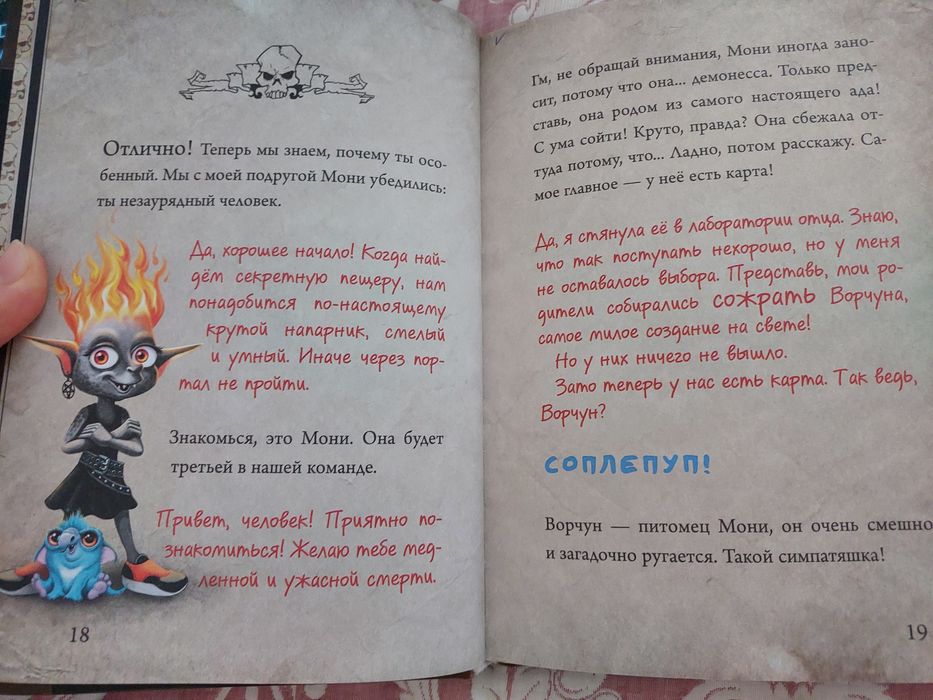 Отлично! Теперь мы знаем, почему ты осо-
бенный. Мы с моей подругой Мони убедились:
ты незаурядный человек.
Да, хорошее начало! Когда най-
дём секретную пещеру, нам
понадобится по-настоящему
крутой напарник, смелый
и умный. Иначе через пор-
тал не пройти.
Знакомься, это Мони. Она будет
третьей в нашей команде.
Привет, человек! Приятно по-
знакомиться! Желаю тебе мед-
ленной и ужасной смерти.
18
Гм, не обращай внимания, Мони иногда зано-
сит, потому что она... демонесса. Только пред-
ставь, она родом из самого настоящего ада!
С ума сойти! Круто, правда? Она сбежала от-
туда потому, что... Ладно, потом расскажу. Са-
мое главное — у неё есть карта!
Да, я стянула её в лаборатории отца. Знаю,
что так поступать нехорошо, но у меня
не оставалось выбора. Представь, мои ро-
дители собирались сожрать Ворчуна,
самое милое создание на свете!
Но у них ничего не вышло.
Зато теперь у нас есть карта. Так ведь,
Ворчун?
СОПЛЕПУП!
Ворчун — питомец Мони, он очень смешно
и загадочно ругается. Такой симпатяшка!
19